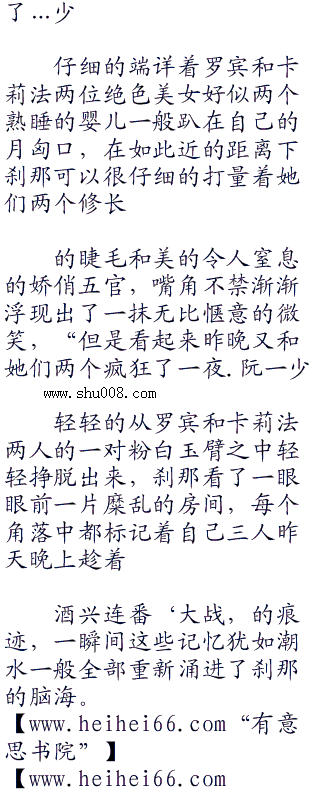 了…少
仔细的端详着罗宾和卡
莉法两位绝色美女好似两个
熟睡的婴儿一般趴在自己的
月匈口，在如此近的距离下
刹那可以很仔细的打量着她
们两个修长
的睫毛和美的令人窒息
的娇俏五官，嘴角不禁渐渐
浮现出了一抹无比惬意的微
笑，“但是看起来昨晚又和
她们两个疯狂了一夜.阮一少
www.shu008.com
轻轻的从罗宾和卡莉法
两人的一对粉白玉臂之中轻
轻挣脱出来，刹那看了一眼
眼前一片糜乱的房间，每个
角落中都标记着自己三人昨
天晚上趁着
酒兴连番‘大战，的痕
迹，一瞬间这些记忆犹如潮
水一般全部重新涌进了刹那
的脑海。
【www.heihei66.com“有意
思书院”】
【www.heihei66.com